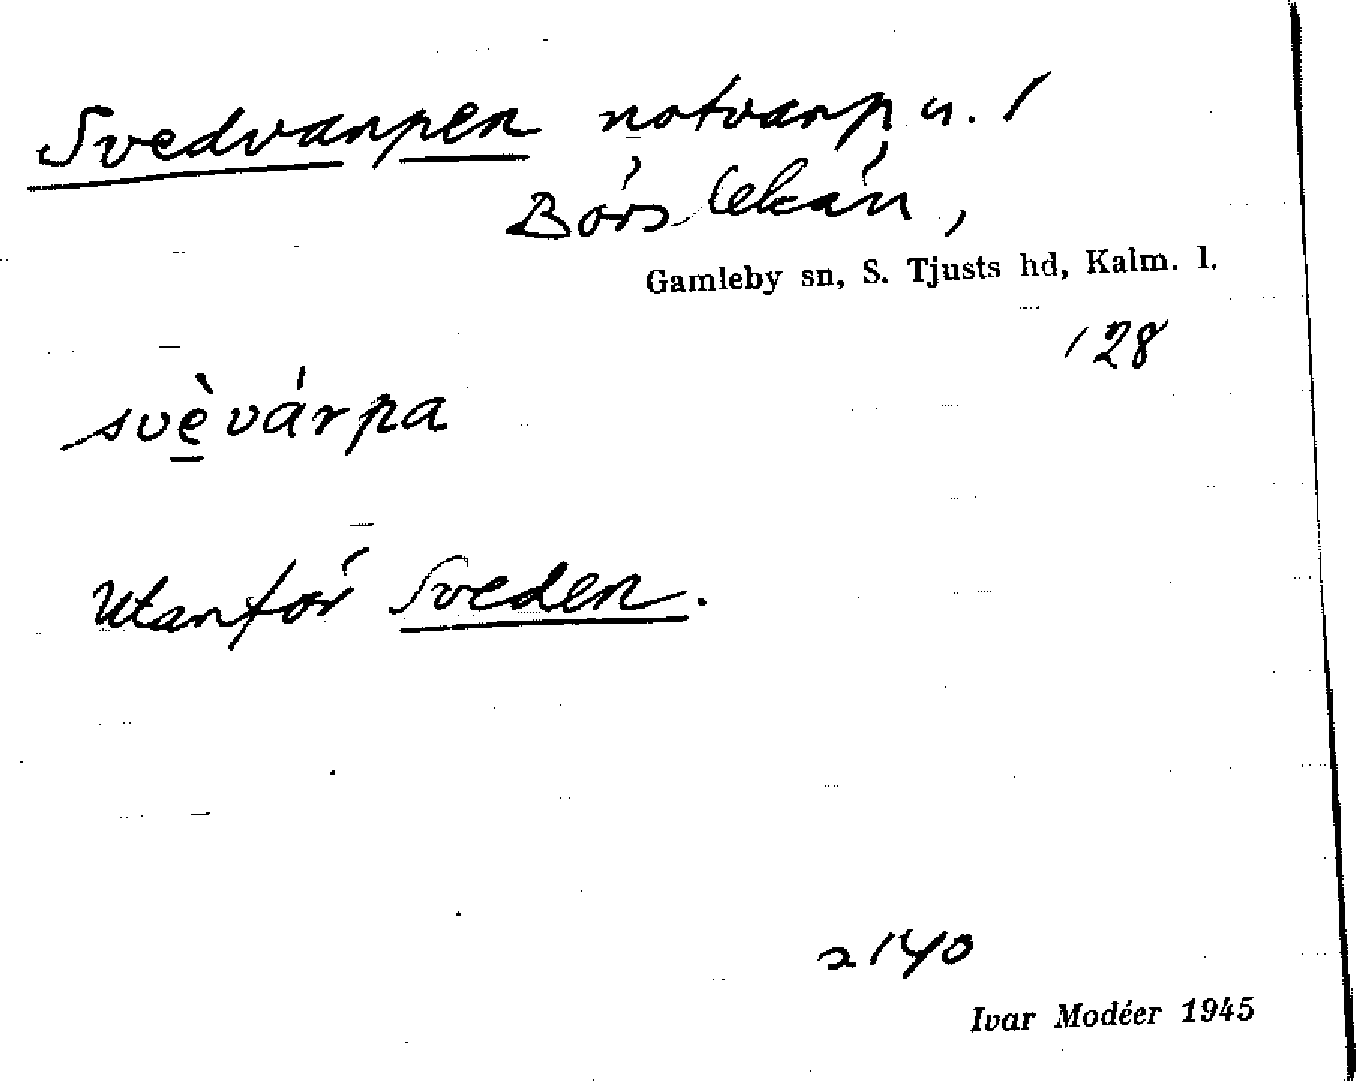 Svedvarpen notvarp u. /
Gamleby sn, S. Tjusts hd, Kalm. l.
128
svèvárpa
Utanför Sveden.
2140
Ivar Modéer 1945